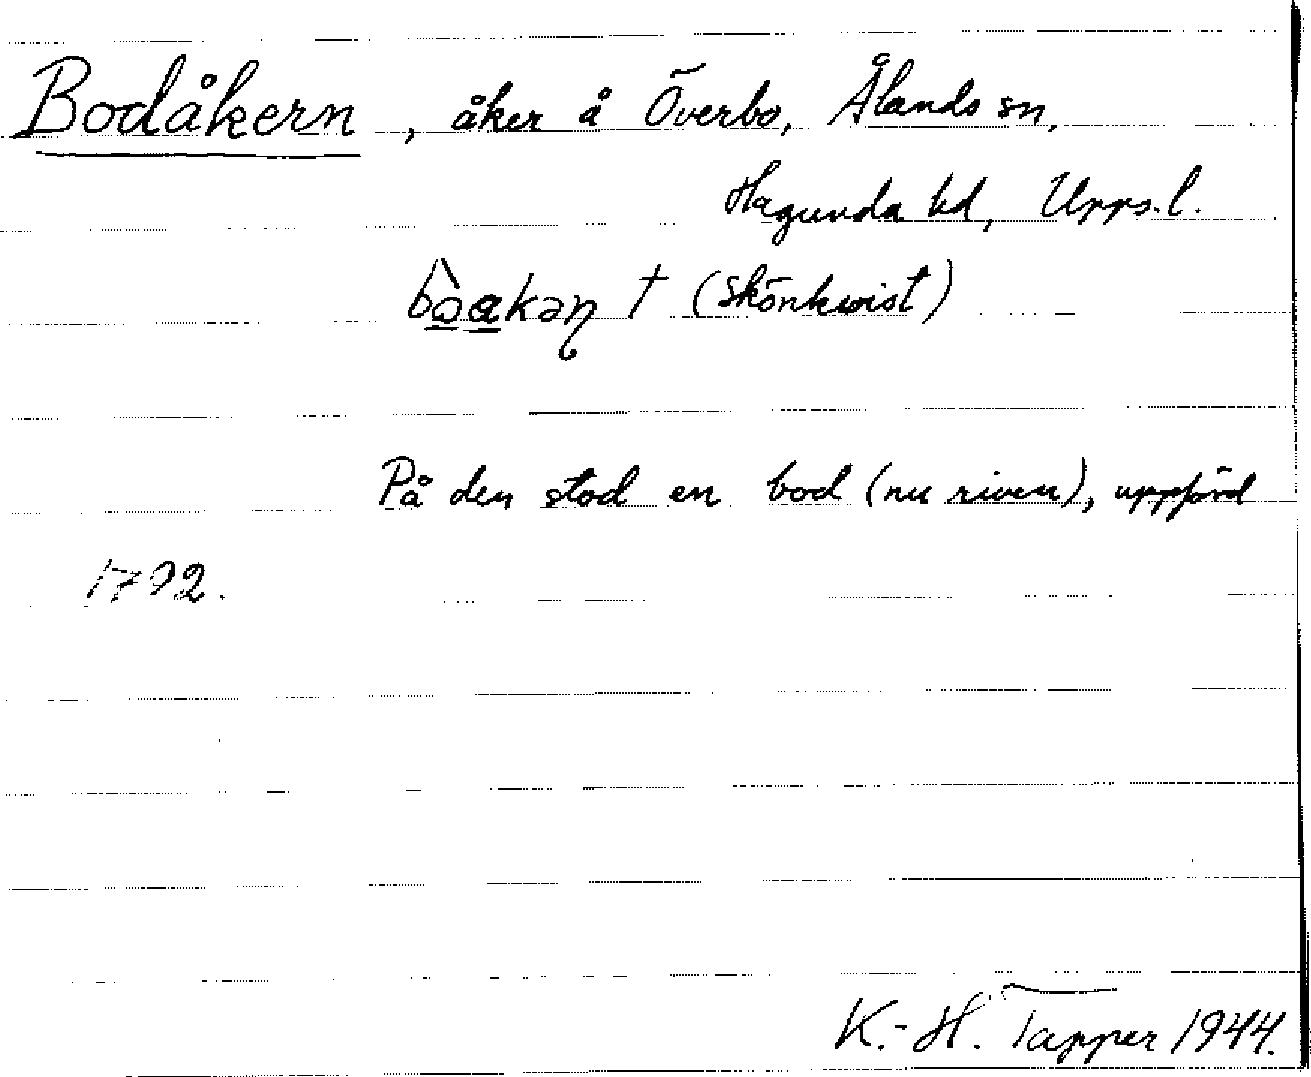 Bodåkern, åker å Överbo, Ålands sn,
Hagunda hd, Upps.l.
bòakəɳ † (Skönkvist)
På den stod en bod (nu riven), uppförd
1792.
K.-H. Tapper 1944.